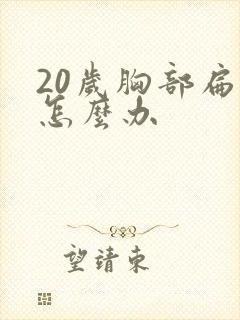 20歲胸部扁
怎麼办
望靖東